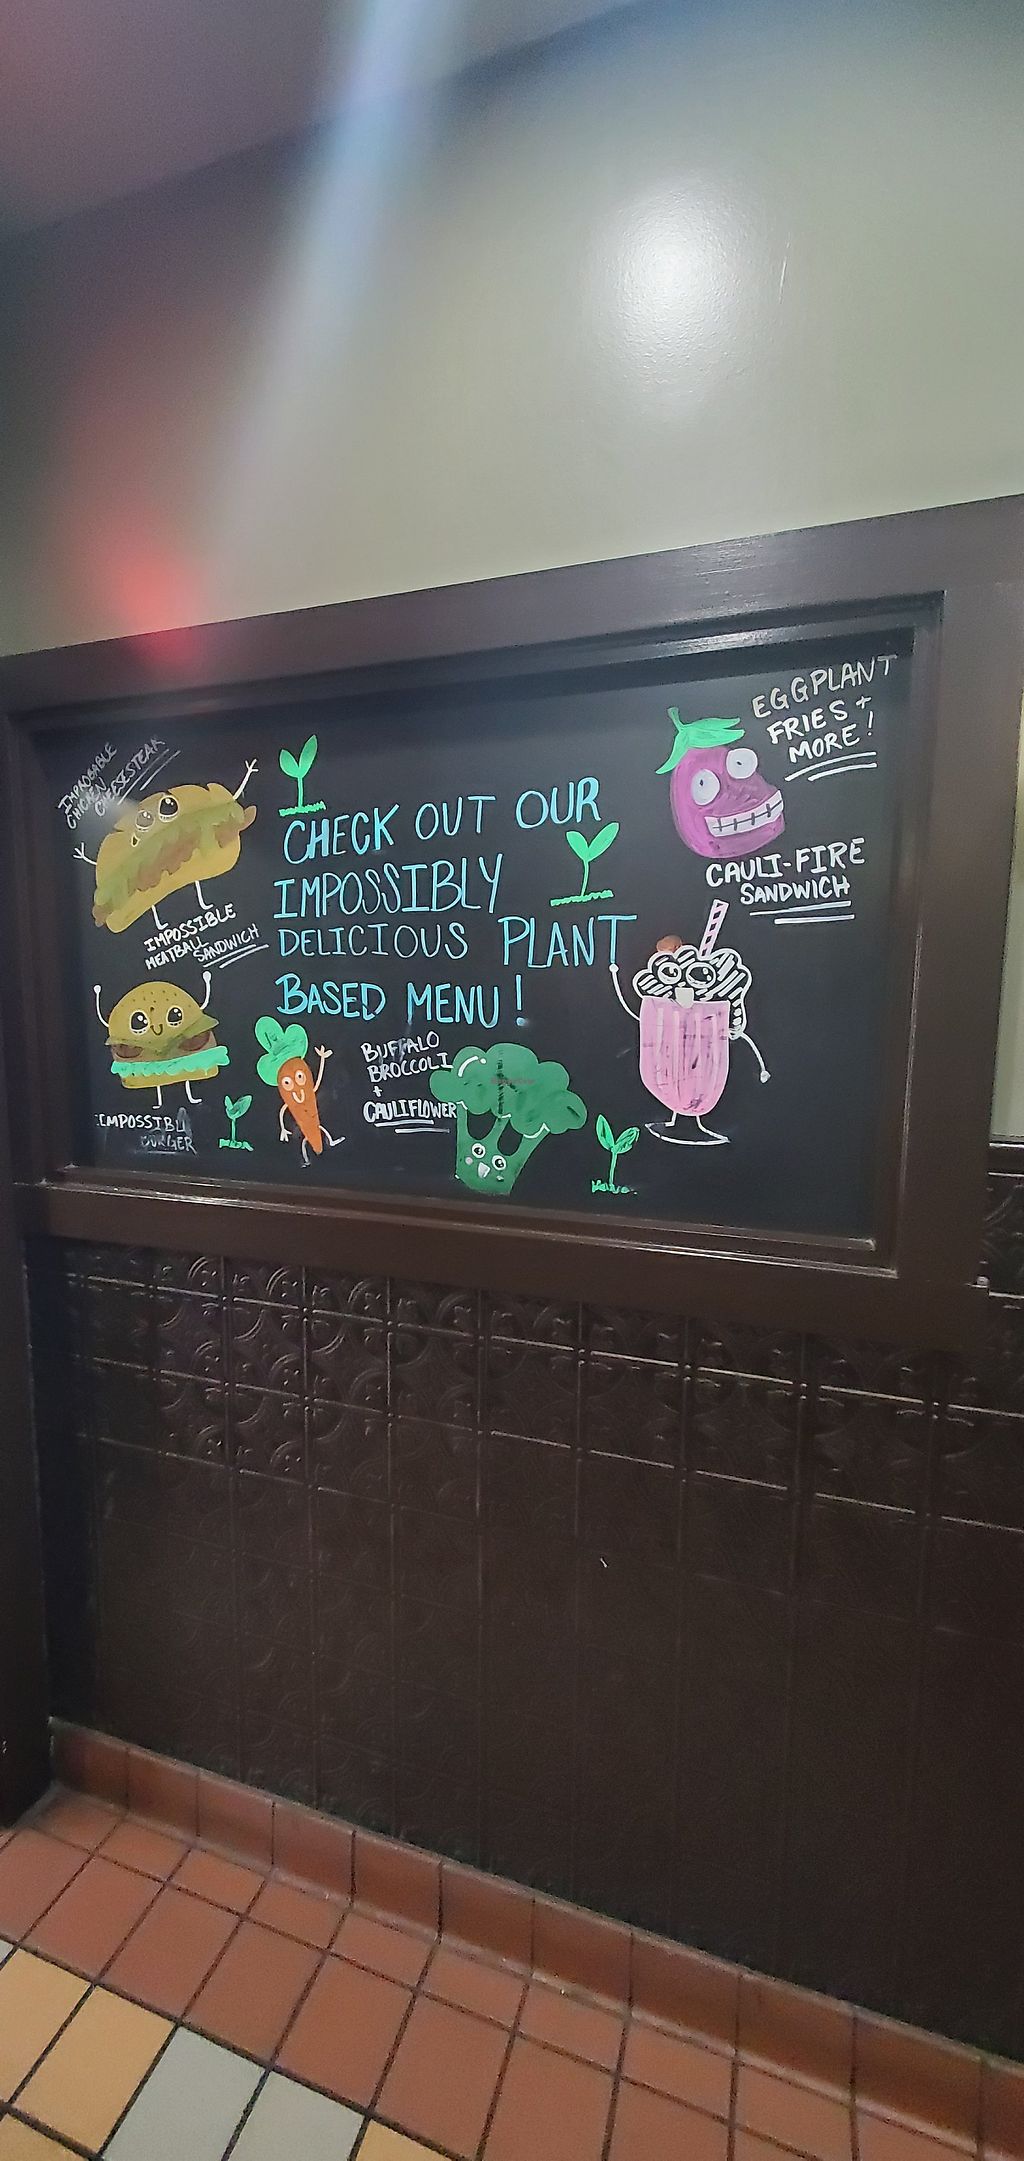 IMPROBABLE
CHICKEN
CHEESESTEAK
IMPOSSIBLE
MEATBALL
SANDWICH
IMPOSSIBL
BURGER
CHECK OUT OUR
IMPOSSIBLY
DELICIOUS PLANT
BASED MENU!
BUFFALO
BROCCOLI
+
CAULIFLOWER
EGGPLANT
FRIES +
MORE!
CAULI-FIRE
SANDWICH